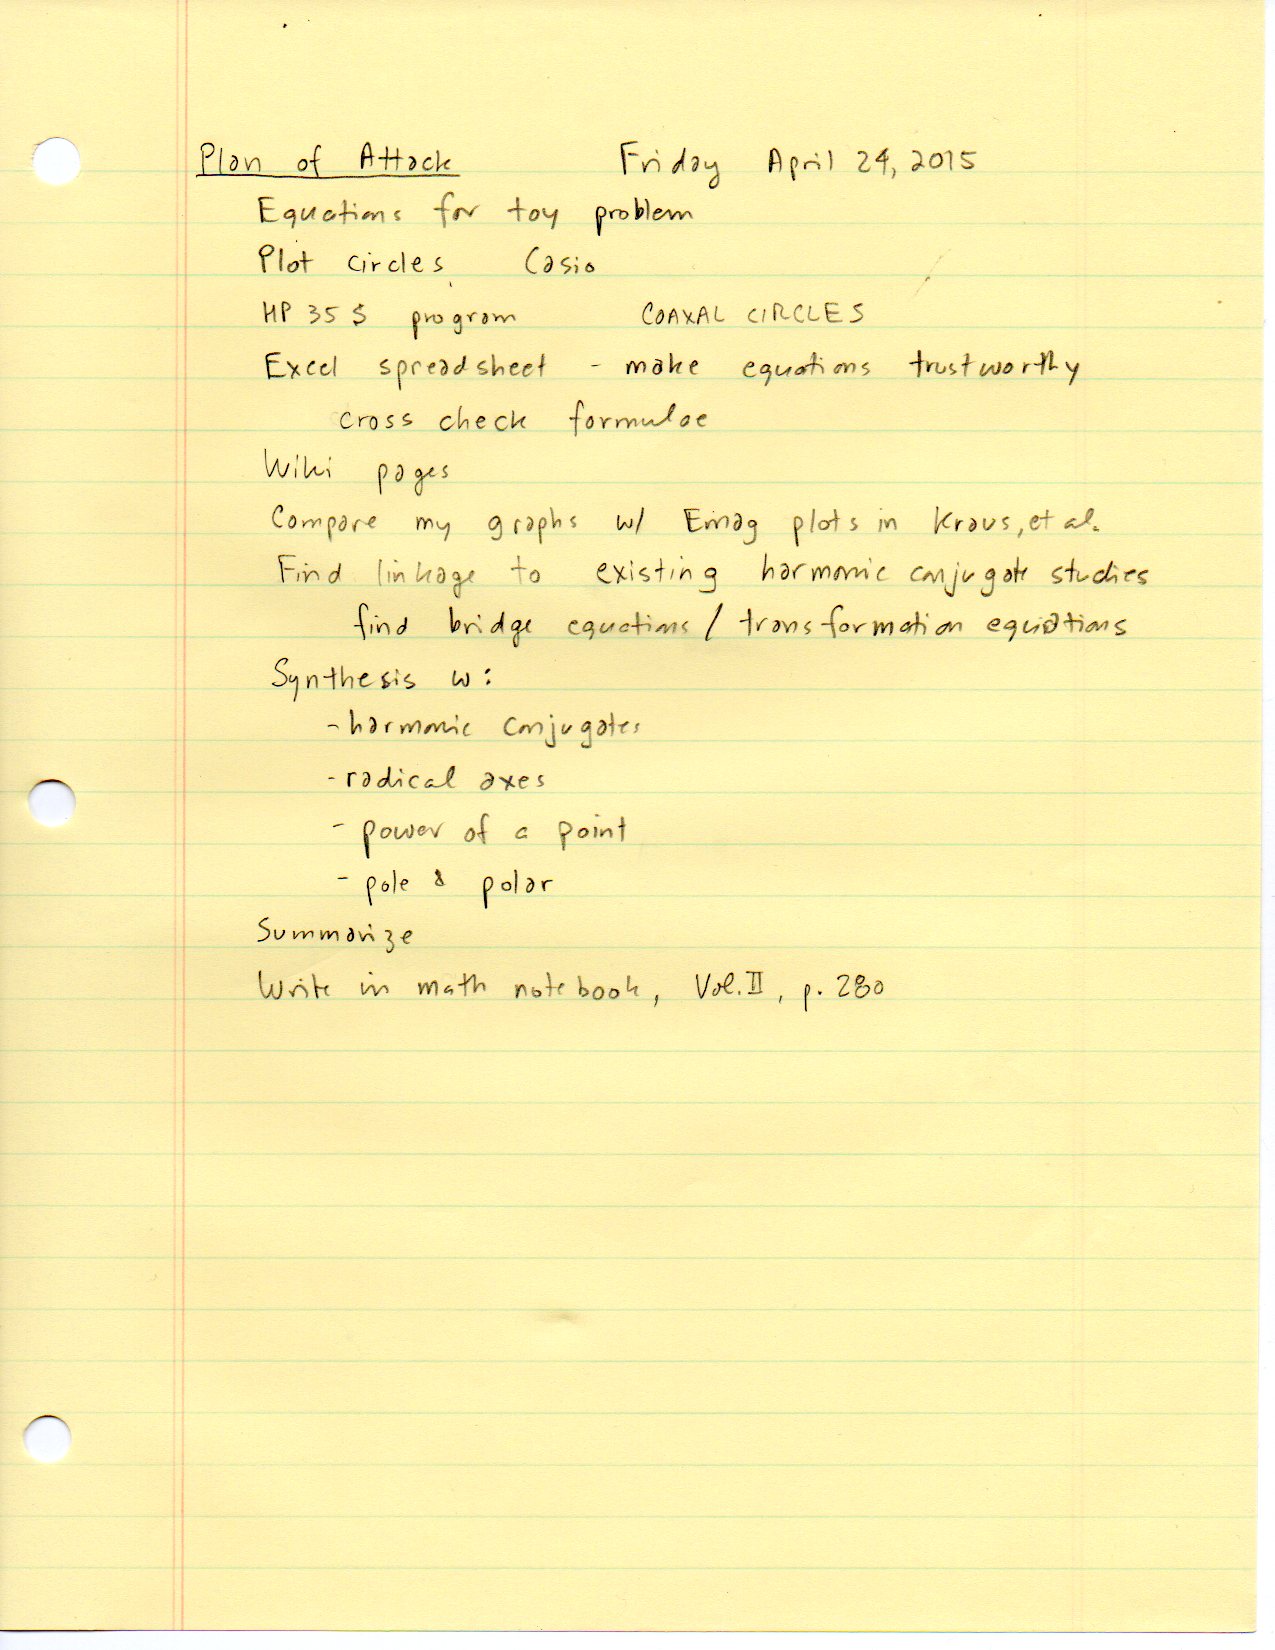 Plan of Attack Friday April 24, 2015
Equations for toy problem
Plot circles Casio
HP 35 S program COAXAL CIRCLES
Excel spreadsheet - make equations trustworthy
cross check formulae
Wiki pages
Compare my graphs w/ Emag plots in Kraus, et al.
Find linkage to existing harmonic conjugate studies
find bridge equations / transformation equations
Synthesis w:
- harmonic conjugates
- radical axes
- power of a point
- pole & polar
Summarize
Write in math notebook, Vol. II, p. 280